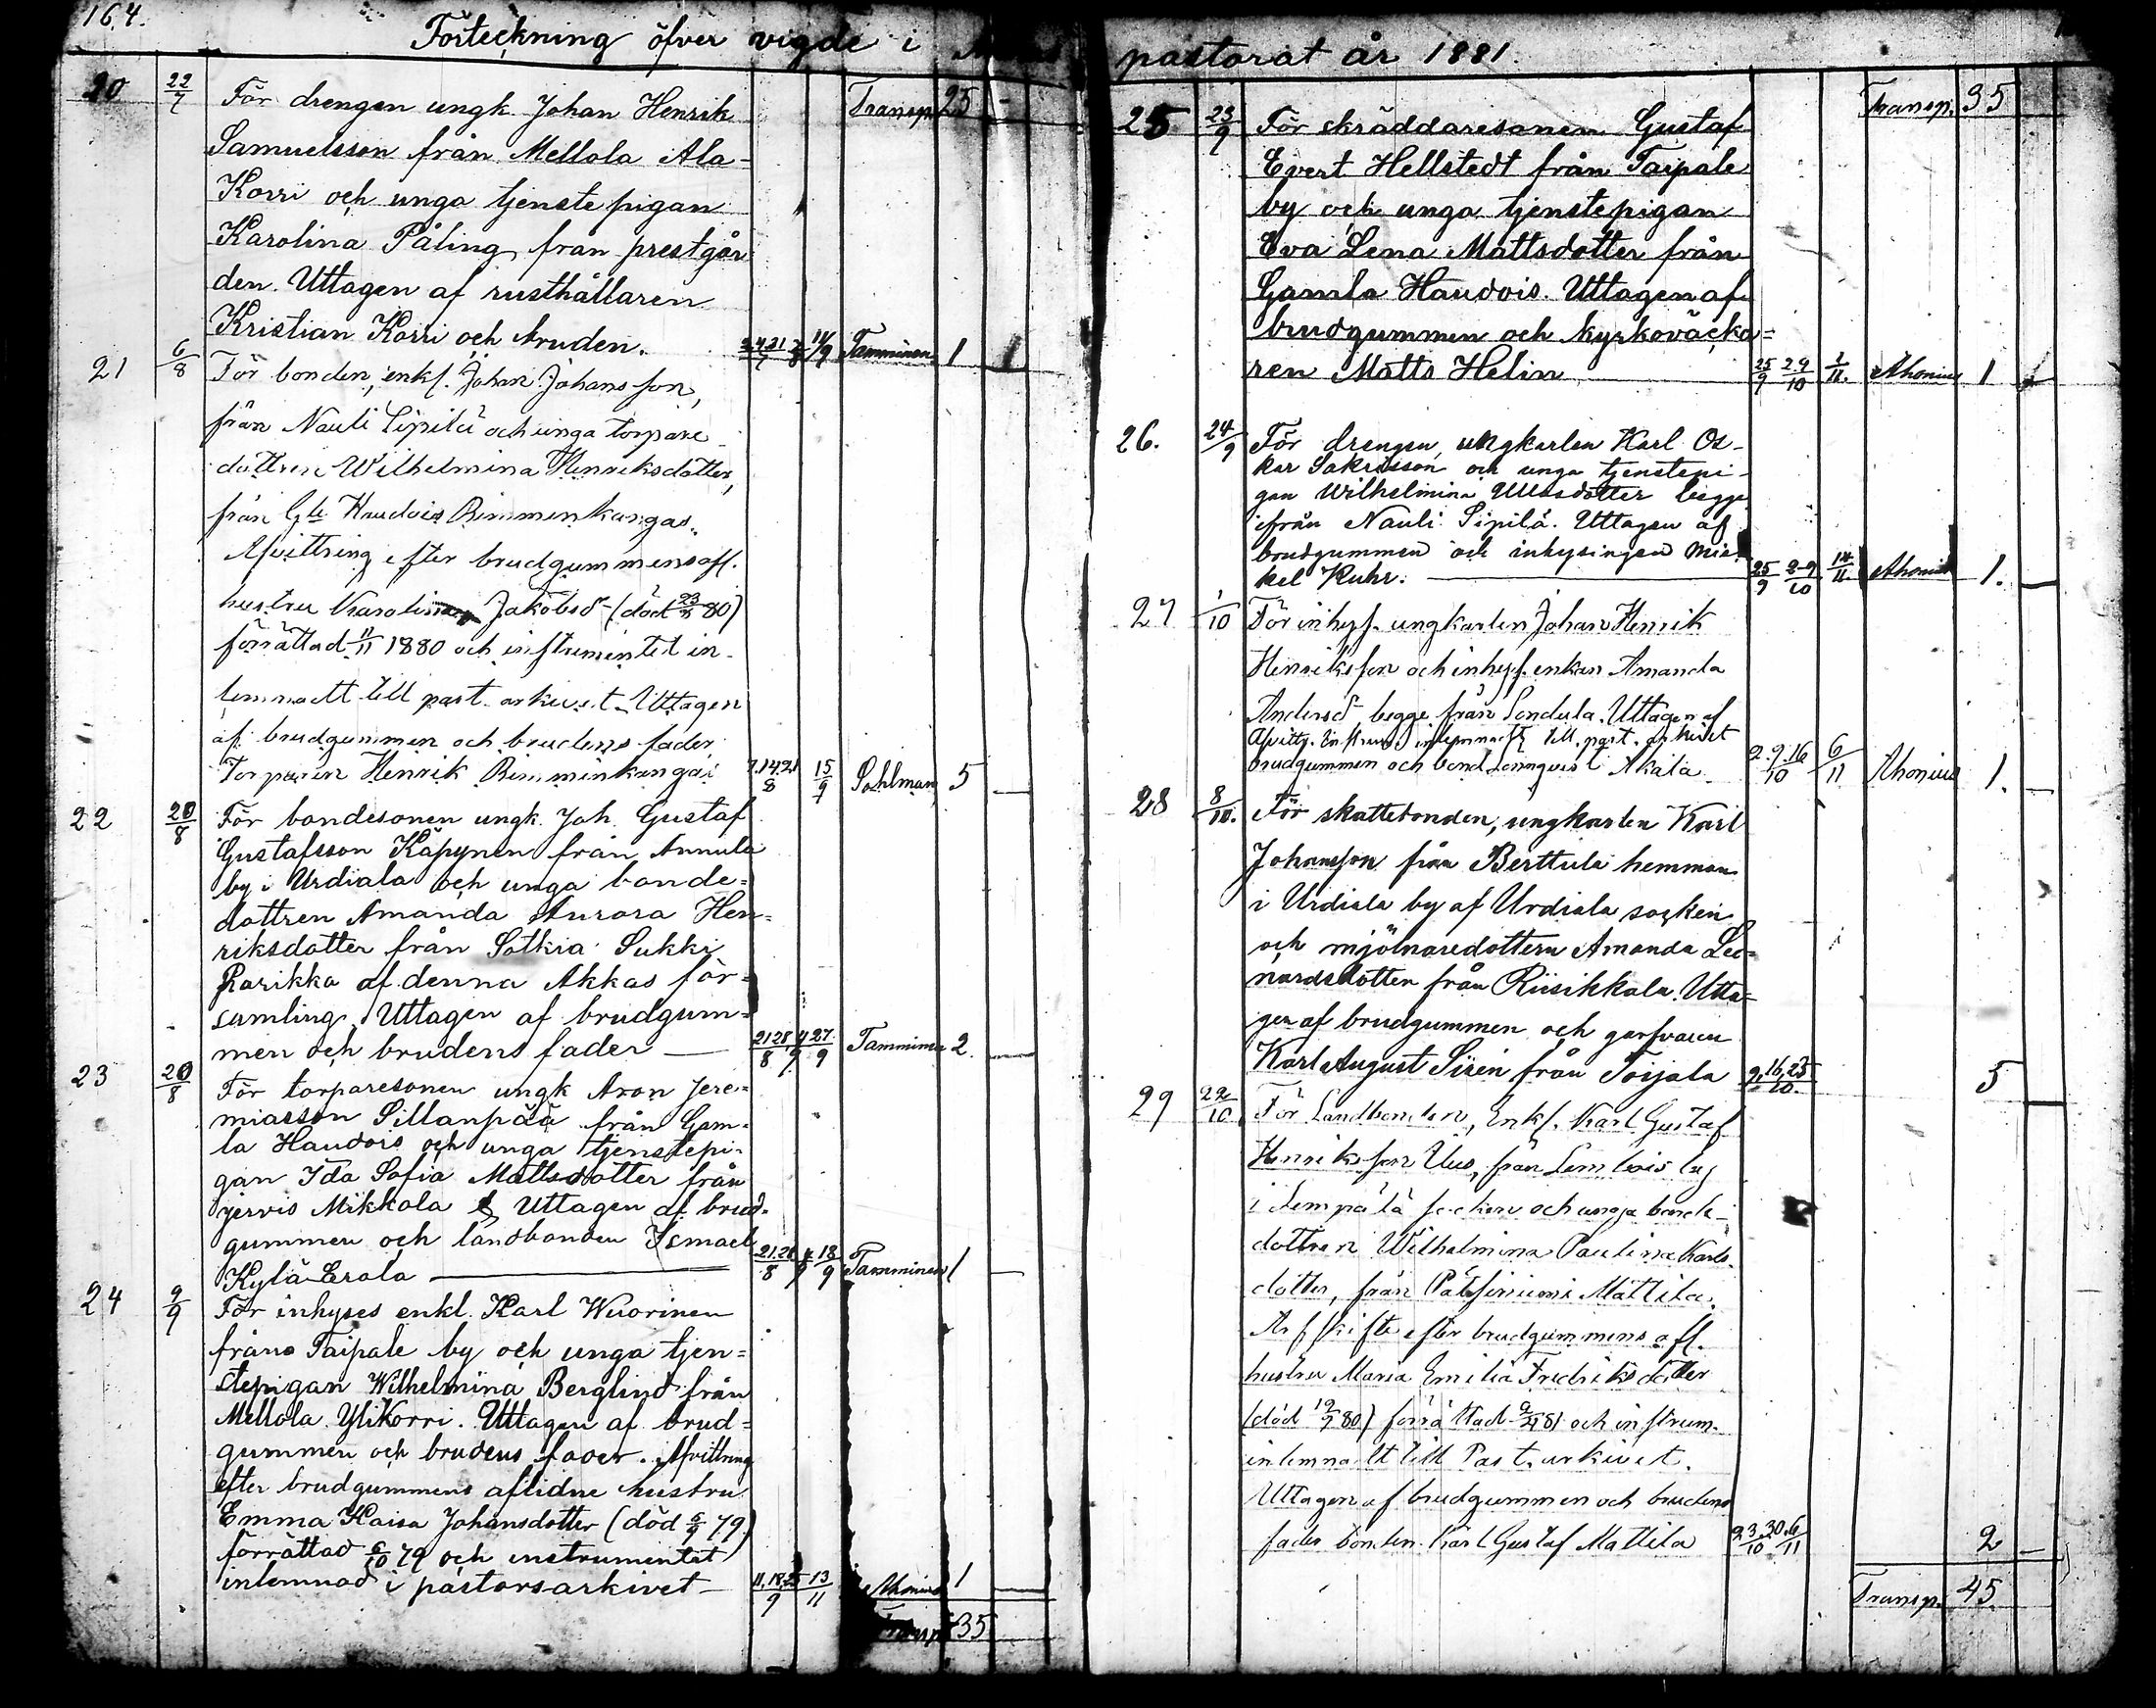 164.
Förteckning öfver vigde i
20 22/7 För drengen ungk. Johan Henrik Transp. 25 -
Samuelsson från Mellola Ala-
Korri och unga tjenstepigan
Karolina Påling från prestgår-
den. Uttagen af rusthållaren
Kristian Korri och bruden. Tamminen 1
21 6/8 För bonden, enkl. Johan Johansson,
från Nauli Sipilä och unga torpare-
dottren Wilhelmina Henriksdotter,
från Gla Haudois Rimminkangas.
Afvittring efter brudgummens afl.
hustru Karolina Jakobsd (död 80)
förrättad 11/11 1880 och instrumentet in-
lemnadt till past. arkivet. Uttagen
af brudgummen och brudens fader
Torparen Henrik Rimminkangas 7.14.21/8 15/9 Sahlman 5 -
22 20/8 För bondesonen ungk. Joh. Gustaf
Gustafsson Käpynen från Annula
by i Urdiala och unga bonde-
dottren Amanda Aurora Hen-
riksdotter från Sotkia Sukki
Rarikka af denna Akkas för-
samling. Uttagen af brudgum-
men och brudens fader — 21 28/8 4/9 27/9 Tamminen 2. -
23 20/8 För torparesonen ungk Aron Jere-
miasson Sillanpää från Gam-
la Haudois och unga tjenstepi-
gan Ida Sofia Mattsdotter från
Mikkola Uttagen af brud-
gummen och landbonden Ismael
Kylä Erola — 21.28/8 4/9 18/9 Tamminen 1 -
24 9/9 För inhyses enkl. Karl Wuorinen
från Taipale by och unga tjen-
stepigan Wilhelmina Berglind från
Mellola Yli Korri. Uttagen af brud-
gummen och brudens fader. Afvittring
efter brudgummens aflidne hustru
Emma Kaisa Johansdotter (död 5/9 79)
förrättad 6/10 79 och instrumentet
inlemnad i pastorsarkivet — 11.18.25/9 13/11 Ahonius 1 -
Transp. 35
pastorat år 1881.
Transp. 35
25 23/9 För skräddaresonen Gustaf
Evert Hellstedt från Taipale
by och unga tjenstepigan
Eva Lena Mattsdotter från
Gamla Haudois. Uttagen af
brudgummen och kyrkoväcka-
ren Matts Helin — 25/9 2.9/10 1/11. Ahonius 1 -
26. 24/9 För drengen, ungkarlen Karl Os-
kar Sakrisson och unga tjenstepi-
gan Wilhelmina Ullasdotter begge
ifrån Nauli Sipilä. Uttagen af
brudgummen och inhysingen Mic-
kel Kuhr. — 25/9 2.9/10 14/11 Ahonius 1. -
27 1/10 För inhys. ungkarlen Johan Henrik
Henriksson och inhys. enkan Amanda
Andersd begge från Sondula. Uttagen af
Afvittr. Instrum. inlemnadt till past. arkivet
brudgummen och bond Lönnqvist Akala 2.9.16/10 6/11 Ahonius 1. -
28 8/10. För skattebonden, ungkarlen Karl
Johansson från Berttula hemman
i Urdiala by af Urdiala socken
och mjölnaredottern Amanda Leo-
nardsdotter från Riisikkala. Utta-
gen af brudgummen och garfvaren
Karl August Sirén från Toijala 9.16.23/10. 5 -
29 22/10 För Landbonden, Enkl. Karl Gustaf
Henriksson Uus, från Lembois by
i Lempälä socken och unga bonde-
dottren Wilhelmina Paulina Karls-
dotter, från Mattila.
Arfskifte efter brudgummens afl.
hustru Maria Emilia Fredriksdotter
(död 19/9 80) förrättad 81 och instrum.
inlemnadt till Past. arkivet.
Uttagen af brudgummen och brudens
fader bonden Karl Gustaf Mattila 23.30/10 6/11 2 -
Transp. 45